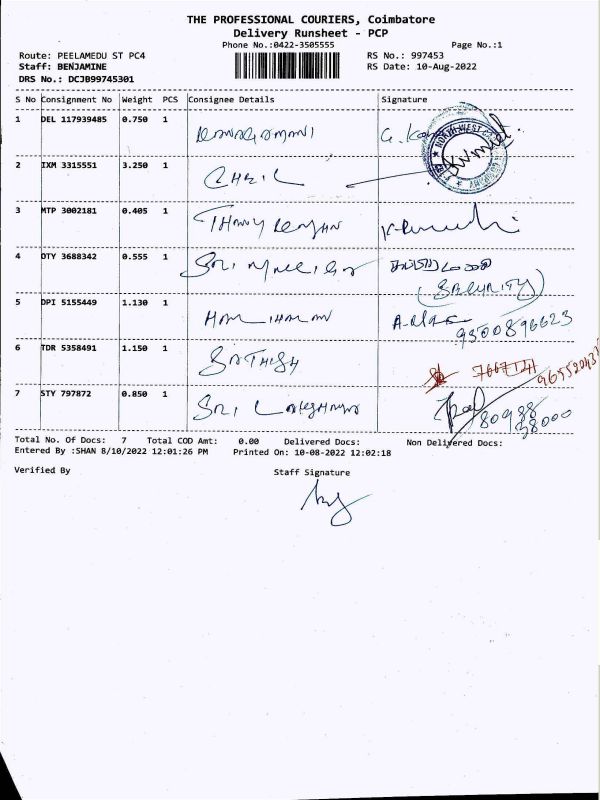 THE PROFESSIONAL COURIERS, Coimbatore
Delivery Runsheet - PCP
Phone No.:0422-3505555 Page No.:1
Route: PEELAMEDU ST PC4 RS No.: 997453
Staff: BENJAMINE RS Date: 10-Aug-2022
DRS No.: DCJB99745301
S No Consignment No Weight PCS Consignee Details Signature
1 DEL 117939485 0.750 1
2 IXM 3315551 3.250 1
3 MTP 3002181 0.405 1
4 OTY 3688342 0.555 1 SRI
(SECURITY)
5 DPI 5155449 1.130 1
9500896623
6 TDR 5358491 1.150 1 SATHISH
7 STY 797872 0.850 1 SRI
80988
38000
Total No. Of Docs: 7 Total COD Amt: 0.00 Delivered Docs: Non Delivered Docs:
Entered By :SHAN 8/10/2022 12:01:26 PM Printed On: 10-08-2022 12:02:18
Verified By Staff Signature